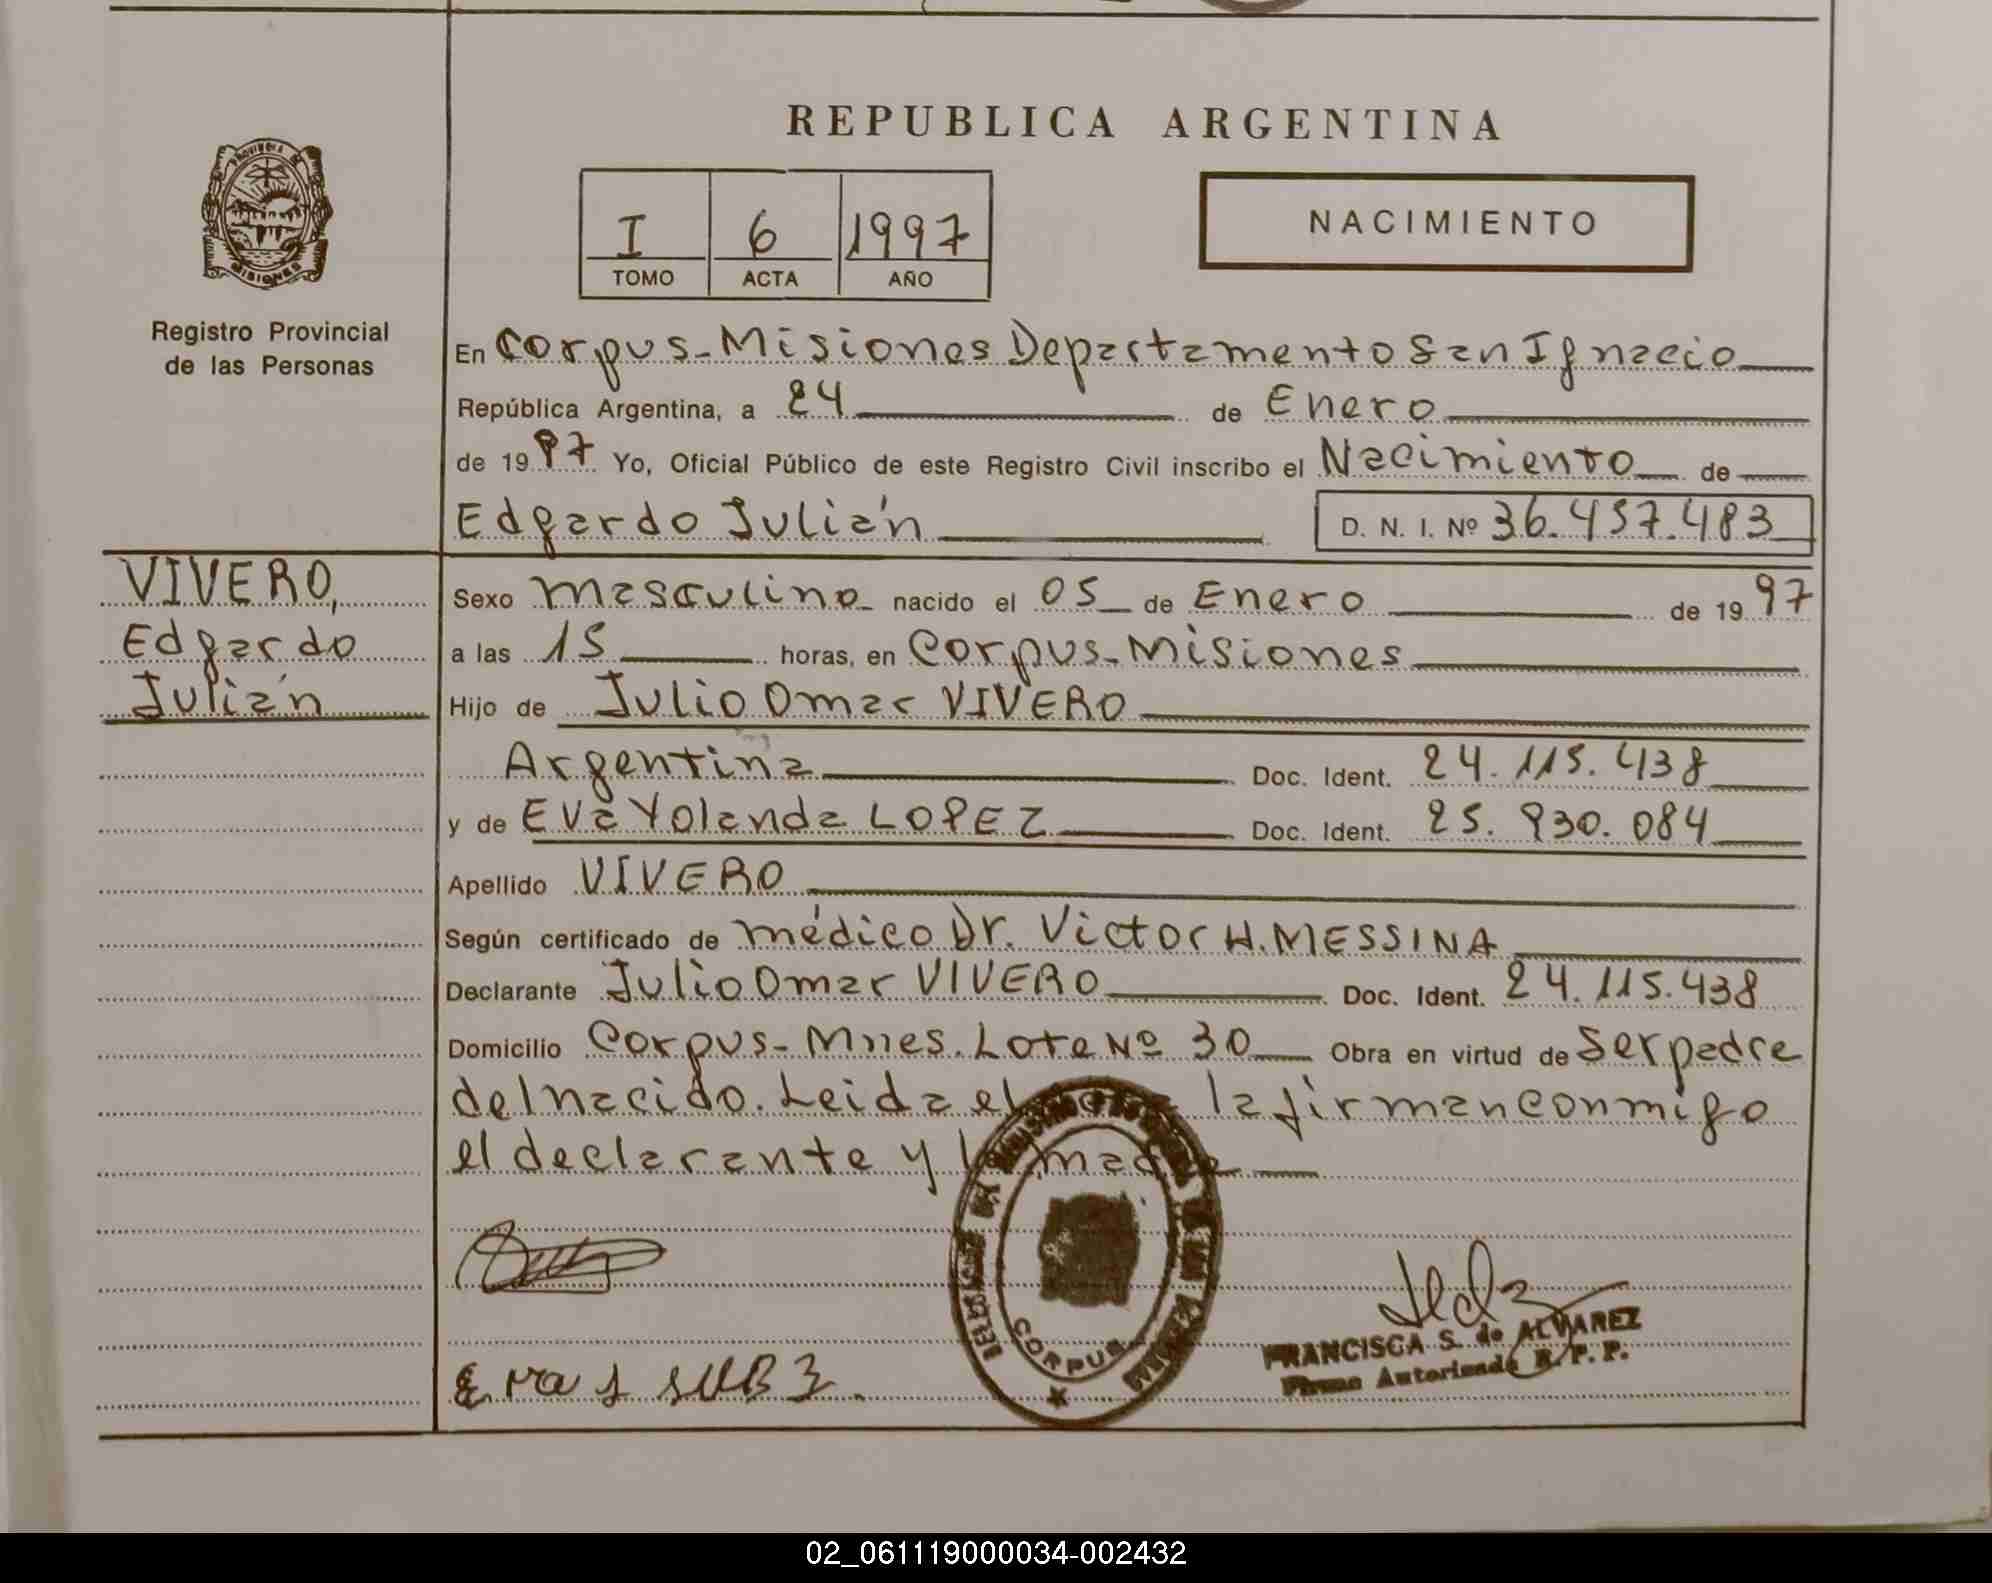 REPUBLICA ARGENTINA
PROVINCIA DE
MISIONES
Registro Provincial
de las Personas
I 6 1997
TOMO ACTA AÑO
NACIMIENTO
En Corpus-Misiones Departamento San Ignacio
República Argentina, a 24 de Enero
de 1997 Yo, Oficial Público de este Registro Civil inscribo el Nacimiento de
Edgardo Julián D. N. I. Nº 36.437.483
VIVERO,
Edgardo
Julián
Sexo masculino nacido el 05 de Enero de 1997
a las 15 horas, en Corpus-Misiones
Hijo de Julio Omar VIVERO
Argentina Doc. Ident. 24.115.438
y de Eva Yolanda LOPEZ Doc. Ident. 25.930.084
Apellido VIVERO
Según certificado de médico Dr. Victor H. MESSINA
Declarante Julio Omar VIVERO Doc. Ident. 24.115.438
Domicilio Corpus-Mnes. Lote Nº 30 Obra en virtud de Ser padre
del nacido. Leida el la firman conmigo
el declarante y la madre
CORPUS
FRANCISCA S. de ALVAREZ
Firma Autorizada R. P. P.
02_061119000034-002432